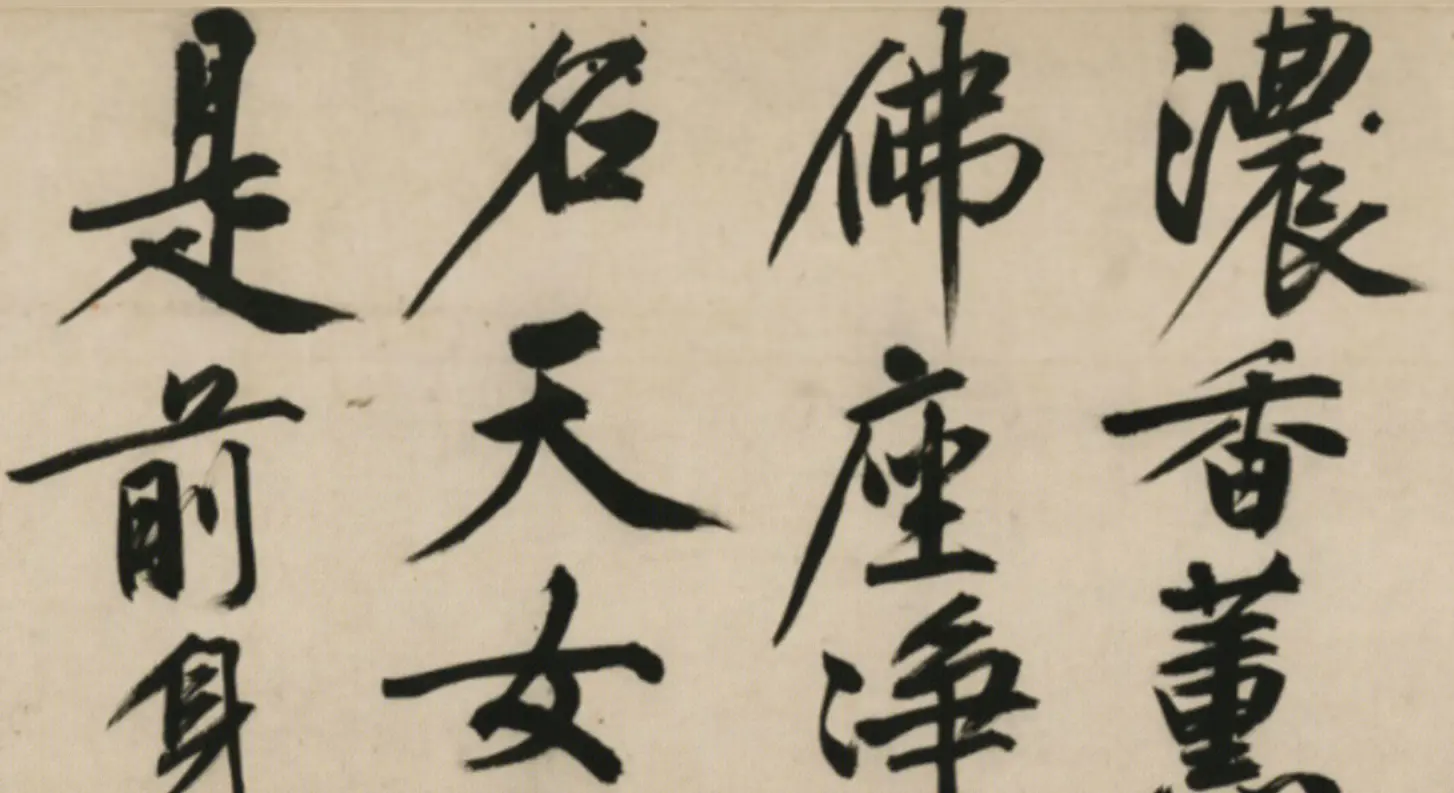 濃香薰
佛座淨
名天女
是前身